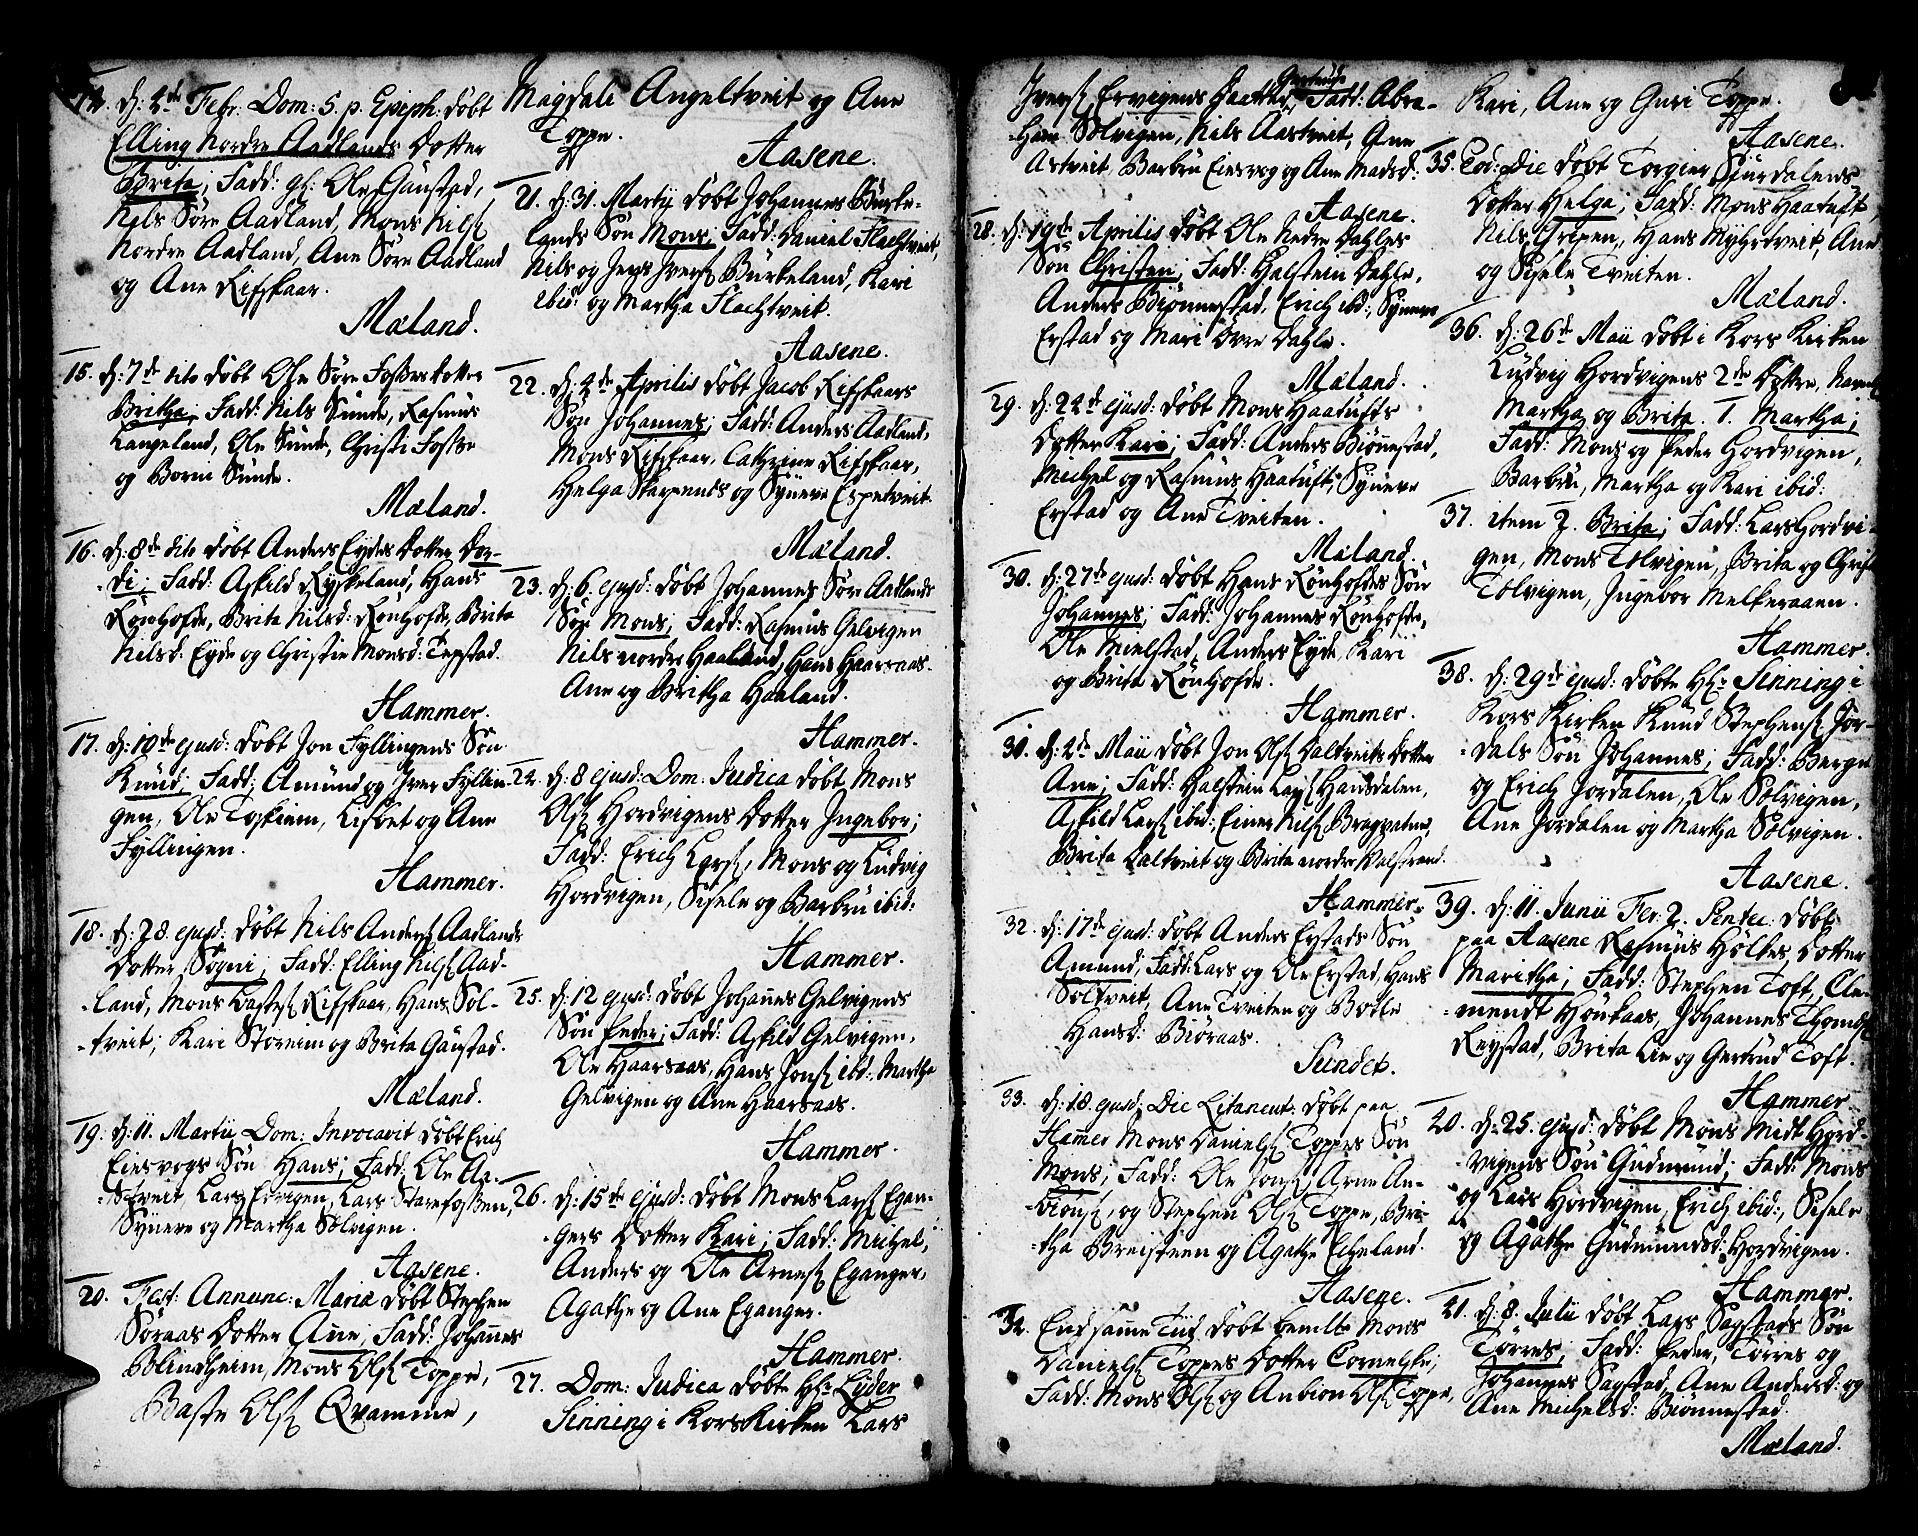 14. d: 4de Febr. Dom: 5. p. Epiph: døbt
Elling Nordre Aadlands Dotter
Brita; Fadd: gl: Ole Gaustad,
Nils Søre Aadland, Mons Nilss.
Nordre Aadland, Ane Søre Aadland
og Ane Rifskaar.
Mæland.
15. d: 7de dito døbt Ole Søre Fosses dotter
Britha; Fadd: Nils Sunde, Rasmus
Langeland, Ole Sunde, Christi Fosse
og Borni Sunde.
Mæland.
16. d: 8de dito døbt Anders Eydes Dotter Dor-
di; Fadd: Askild Ryskeland, Hans
Rønhofde, Brita Nilsd: Rønhofde, Brita
Nilsd: Eyde og Christie Monsd: Tepstad.
Hammer.
17. d: 10de ejusd: døbt Jon Fyllingens Søn
Knud; Fadd; Amund og Iver Fyllin-
gen, Ole Toskiem, Lisbet og Ane
Fyllingen.
Hammer.
18. d: 28. ejusd: døbt Nils Anderss. Aadlands
Dotter Sogni; Fadd: Elling Nilss. Aad-
-land, Mons Bastess. Rifskaar, Hans Sol-
-tveit; Kari Storeim og Brita Gaustad.
Mæland.
19. d: 11. Martii Dom: Invocavit døbt Erich
Einesvogs Søn Hans; Fadd: Ole Aa-
-stveit, Lars Ervigen, Lars Starefossen,
Syneve og Martha Solvigen.
Aasene.
20. Fest: Annunc: Mariæ døbt Stephen
Søraas Dotter Ane; Fadd: Johannes
Blindheim, Mons Olss. Toppe,
Baste Olss. Qvamme,
Magdali Angeltveit og Ane
Toppe.
Aasene.
21. d: 31. Martii døbt Johannes Burke-
lands Søn Mons; Fadd: Daniel Flachtveit,
Nils og Jens Iverss. Burkeland, Kari
ibid: og Martha Flachtveit.
Aasene.
22. d: 4de Aprilis døbt Jacob Rifskaars
Søn Johannes; Fadd: Anders Aadland,
Mons Rifskaar, Cathrine Rifskaar,
Helga Skarpenes og Syneve Espetveit.
Mæland.
23. d: 6 ejusd: døbt Johannes Søre Aadlands
Søn Mons; Fadd: Rasmus Gelvigen
Nils nordre Haaland, Hans Haarsaas.
Ane og Britha Haaland.
Hammer.
24. d: 8 ejusd: Dom: Judica døbt Mons
Olss. Hordvigens Dotter Ingebor;
Fadd: Erich Larss., Mons og Ludvig
Hordvigen, Sisele og Barbru ibid:
Hammer.
25. d: 12 ejusd: døbt Johanes Gelvigens
Søn Peder; Fadd: Askild Gelvigen,
Ole Haarsaas, Hans Jonss. ibid:, Martha
Gelvigen og Ane Haarsaas.
Hammer.
26. d: 15de ejusd: døbt Mons Larss. Egan-
-gers Dotter Kari; Fadd: Michel,
Anders og Ole Arness. Eganger,
Agathe og Ane Eganger.
Hammer.
27. Dom: Judica døbte Hr. Eyder
Sinning i Kors Kirken Lars
Iverss. Ervigens Daatter, Gertrude Fadd: Abra-
-ham Solvigen, Nils Aastveit, Ane
Astveit, Barbru Einesvog og Ane Madsd:
Aasene.
28. d: 19de Aprilis døbt Ole Nedre Dahles
Søn Christen; Fadd: Halstein Dahle,
Anders Biørnestad, Erich ibd:, Syneve
Erstad og Mari Øvre Dahle.
Mæland.
29. d: 24de ejusd: døbt Mons Haatufts
Dotter Kari; Fadd: Anders Biønestad,
Michel og Rasmus Haatuft, Syneve
Erstad og Ane Tveiten.
Mæland.
30. d: 27de ejusd: døbt Hans Rønhofdes Søn
Johannes; Fadd: Johannes Rønhofde,
Ole Mielstad, Anders Eyde, Kari
og Brita Rønhofde.
Hammer.
31. d: 2de Maii døbt Jon Olss. Kaltveits Dotter
Ane; Fadd: Halstein Larss. Hansdalen,
Askild Larss. ibid:, Einer Nilss. Bragvatne,
Brita Kaltveit og Brita nordre Kalstrand.
Hammer.
32. d: 17de ejusd: døbt Anders Erstads Søn
Amund, Fadd: Lars og Ole Erstad, Hans
Soltveit, Ane Tveiten og Botle
Hansd: Biøraas.
Sundet.
33. d: 18. ejusd: Die Litaneut: døbt paa
Hamer Mons Danielss. Toppes Søn
Mons; Fadd: Ole Jonss., Arne An-
-bionss., og Stephen Olss. Toppe, Bri-
-tha Breisteen og Agathe Echeland.
Aasene.
34. End same Tiid døbt bemelte Mons
Danielss. Toppes Dotter Cornelche;
Fadd: Mons Olss. og Anbion Olss. Toppe,
Kari, Ane og Guri Toppe.
Aasene.
35. Eod: Die døbt Torgier Siurdalens
Dotter Helga; Fadd: Mons Haatuft,
Nils Gripen, Hans Myhrdtveit, Ane
og Sisele Tveiten.
Mæland.
36. d: 26de Maii døbt i Kors Kirken
Ludvig Hordvigens 2de Dottre, Navnl.
Martha og Brita. 1. Martha;
Fadd: Mons og Peder Hordvigen,
Barbru, Martha og Kari ibid:
37. item 2. Brita; Fadd: Lars Hordvi-
gen, Mons Tolvigen, Brita og Christi
Tolvigen, Ingebor Melkeraaen.
Hammer.
38. d: 29de ejusd: døbte Hr. Sinning i
Kors Kirken Knud Stephenss. Jor-
-dals Søn Johannes; Fadd: Berge
og Erich Jordalen, Ole Solvigen,
Ane Jordalen og Martha Solvigen.
Aasene.
39. d: 11. Junii Fer: 2. Pentec: døbt
paa Aasene Rasmus Holtes Dotter
Maritha; Fadd: Stephen Toft, Cle-
-mendt Høukaas, Johannes Thomæss.
Røystad, Brita Lie og Gertrud Toft.
Hammer
40. d: 25. ejusd: døbt Mons Midt Hord-
-vigens Søn Gudmund; Fadd: Mons
og Lars Hordvigen, Erich ibid:, Sisele
og Agathe Gudmundsd: Hordvigen.
Hammer.
41. d: 8. Julii døbt Lars Sagstads Søn
Torres; Fadd: Peder, Torres og
Johannes Sagstad, Ane Andersd: og
Ane Michelsd: Biønnestad.
Mæland.